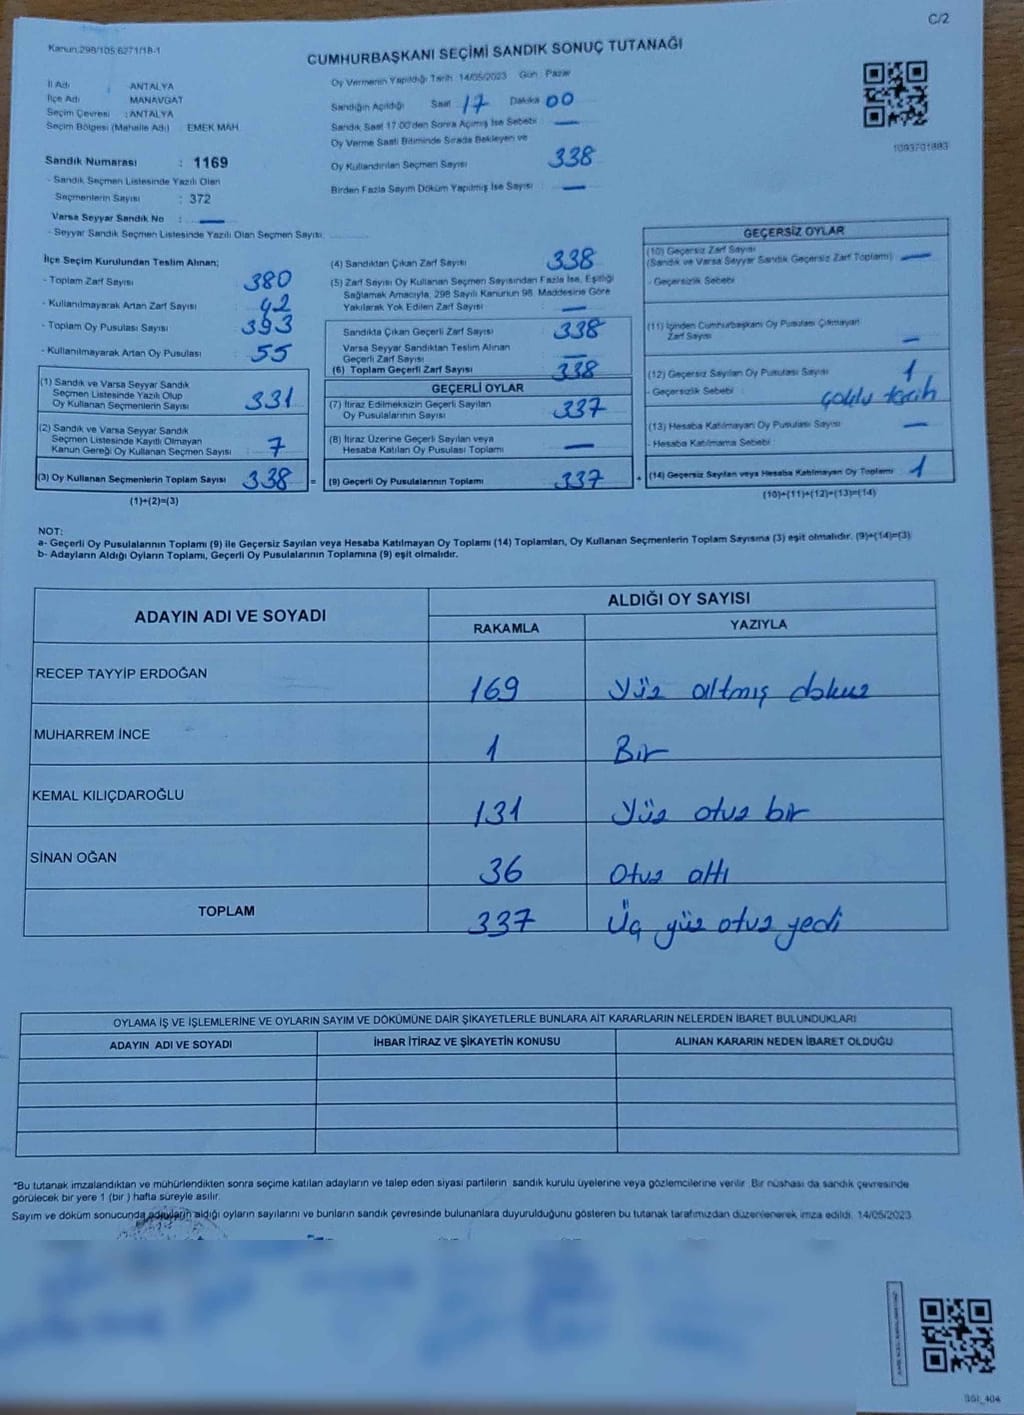 C/2
Kanun:298/105,6271/18-1
CUMHURBAŞKANI SEÇİMİ SANDIK SONUÇ TUTANAĞI
İl Adı : ANTALYA
İlçe Adı : MANAVGAT
Seçim Çevresi : ANTALYA
Seçim Bölgesi (Mahalle Adı) EMEK MAH.
Oy Vermenin Yapıldığı Tarih: 14/05/2023 Gün : Pazar
Sandığın Açıldığı Saat 17 Dakika 00
Sandık Saat 17:00'den Sonra Açılmış İse Sebebi : —
Oy Verme Saati Bitiminde Sırada Bekleyen ve
Oy Kullandırılan Seçmen Sayısı 338
Birden Fazla Sayım Döküm Yapılmış İse Sayısı : —
1093701883
Sandık Numarası : 1169
- Sandık Seçmen Listesinde Yazılı Olan
Seçmenlerin Sayısı : 372
Varsa Seyyar Sandık No : —
- Seyyar Sandık Seçmen Listesinde Yazılı Olan Seçmen Sayısı:
İlçe Seçim Kurulundan Teslim Alınan;
- Toplam Zarf Sayısı : 380
- Kullanılmayarak Artan Zarf Sayısı : 42
- Toplam Oy Pusulası Sayısı : 393
- Kullanılmayarak Artan Oy Pusulası : 55
(1) Sandık ve Varsa Seyyar Sandık
Seçmen Listesinde Yazılı Olup
Oy Kullanan Seçmenlerin Sayısı : 331
(2) Sandık ve Varsa Seyyar Sandık
Seçmen Listesinde Kayıtlı Olmayan
Kanun Gereği Oy Kullanan Seçmen Sayısı : 7
(3) Oy Kullanan Seçmenlerin Toplam Sayısı : 338
(1)+(2)=(3)
(4) Sandıktan Çıkan Zarf Sayısı : 338
(5) Zarf Sayısı Oy Kullanan Seçmen Sayısından Fazla İse, Eşitliği
Sağlamak Amacıyla, 298 Sayılı Kanunun 98. Maddesine Göre
Yakılarak Yok Edilen Zarf Sayısı : —
Sandıkta Çıkan Geçerli Zarf Sayısı : 338
Varsa Seyyar Sandıktan Teslim Alınan
Geçerli Zarf Sayısı : —
(6) Toplam Geçerli Zarf Sayısı : 338
GEÇERLİ OYLAR
(7) İtiraz Edilmeksizin Geçerli Sayılan
Oy Pusulalarının Sayısı : 337
(8) İtiraz Üzerine Geçerli Sayılan veya
Hesaba Katılan Oy Pusulası Toplamı : —
= (9) Geçerli Oy Pusulalarının Toplamı : 337
GEÇERSİZ OYLAR
(10) Geçersiz Zarf Sayısı
(Sandık ve Varsa Seyyar Sandık Geçersiz Zarf Toplamı) : —
- Geçersizlik Sebebi :
(11) İçinden Cumhurbaşkanı Oy Pusulası Çıkmayan
Zarf Sayısı : —
(12) Geçersiz Sayılan Oy Pusulası Sayısı : 1
- Geçersizlik Sebebi : çoklu tercih
(13) Hesaba Katılmayan Oy Pusulası Sayısı : —
- Hesaba Katılmama Sebebi :
+ (14) Geçersiz Sayılan veya Hesaba Katılmayan Oy Toplamı : 1
(10)+(11)+(12)+(13)=(14)
NOT:
a- Geçerli Oy Pusulalarının Toplamı (9) ile Geçersiz Sayılan veya Hesaba Katılmayan Oy Toplamı (14) Toplamları, Oy Kullanan Seçmenlerin Toplam Sayısına (3) eşit olmalıdır. (9)+(14)=(3)
b- Adayların Aldığı Oyların Toplamı, Geçerli Oy Pusulalarının Toplamına (9) eşit olmalıdır.
ADAYIN ADI VE SOYADI ALDIĞI OY SAYISI
RAKAMLA YAZIYLA
RECEP TAYYİP ERDOĞAN 169 Yüz altmış dokuz
MUHARREM İNCE 1 Bir
KEMAL KILIÇDAROĞLU 131 Yüz otuz bir
SİNAN OĞAN 36 Otuz altı
TOPLAM 337 Üç yüz otuz yedi
OYLAMA İŞ VE İŞLEMLERİNE VE OYLARIN SAYIM VE DÖKÜMÜNE DAİR ŞİKAYETLERLE BUNLARA AİT KARARLARIN NELERDEN İBARET BULUNDUKLARI
ADAYIN ADI VE SOYADI İHBAR İTİRAZ VE ŞİKAYETİN KONUSU ALINAN KARARIN NEDEN İBARET OLDUĞU
*Bu tutanak imzalandıktan ve mühürlendikten sonra seçime katılan adayların ve talep eden siyasi partilerin sandık kurulu üyelerine veya gözlemcilerine verilir. Bir nüshası da sandık çevresinde
görülecek bir yere 1 (bir ) hafta süreyle asılır.
Sayım ve döküm sonucunda adayların aldığı oyların sayılarını ve bunların sandık çevresinde bulunanlara duyurulduğunu gösteren bu tutanak tarafımızdan düzenlenerek imza edildi. 14/05/2023